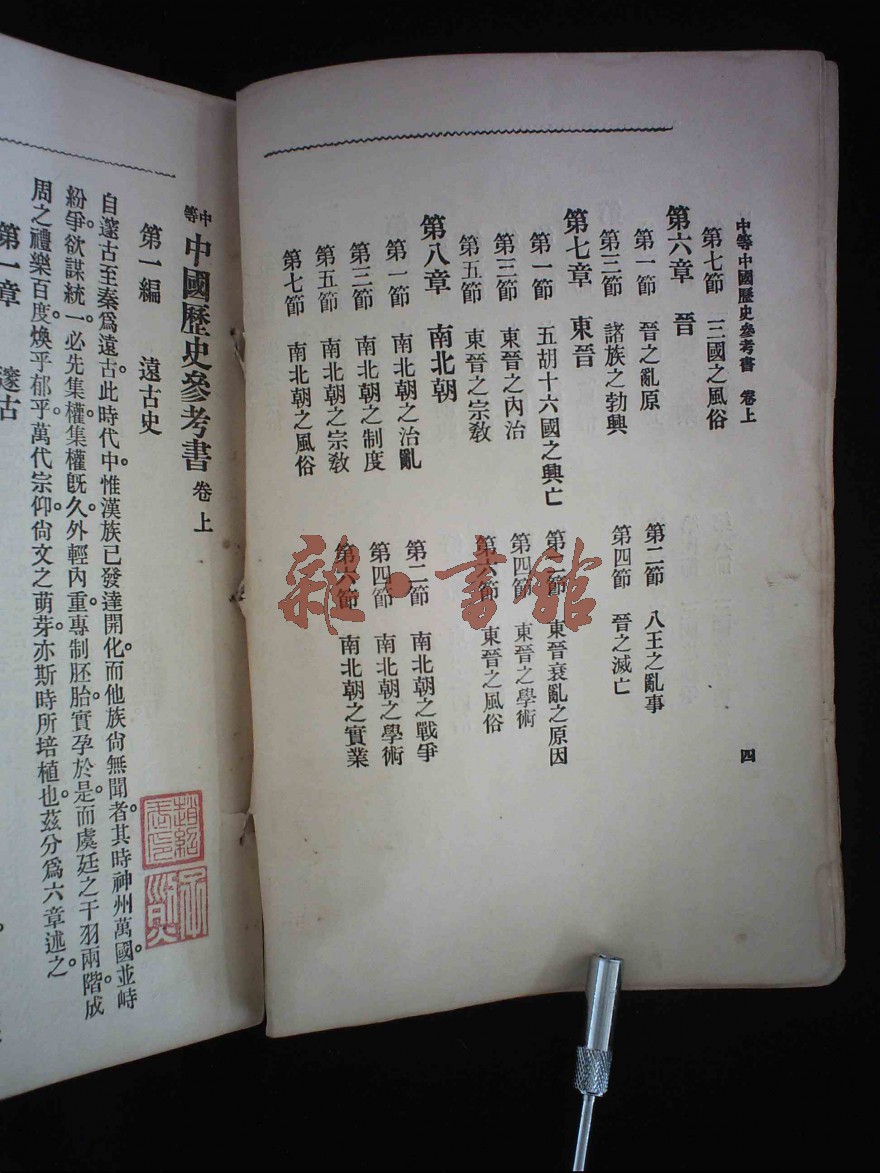 中等中國歷史參考書 卷上 四
第七節 三國之風俗
第六章 晉
第一節 晉之亂原 第二節 八王之亂事
第三節 諸族之勃興 第四節 晉之滅亡
第七章 東晉
第一節 五胡十六國之興亡 第二節 東晉衰亂之原因
第三節 東晉之內治 第四節 東晉之學術
第五節 東晉之宗教 第六節 東晉之風俗
第八章 南北朝
第一節 南北朝之治亂 第二節 南北朝之戰爭
第三節 南北朝之制度 第四節 南北朝之學術
第五節 南北朝之宗教 第六節 南北朝之實業
第七節 南北朝之風俗
中等中國歷史參考書 卷上
第一編 遠古史
自邃古至秦爲遠古。此時代中。惟漢族已發達開化。而他族尙無聞者。其時神州萬國。並峙
紛爭。欲謀統一。必先集權。集權旣久。外輕內重。專制胚胎。實孕於是。而虞廷之干羽兩階。成
周之禮樂百度。煥乎郁乎。萬代宗仰。尙文之萌芽。亦斯時所培植也。茲分爲六章述之。
第一章 邃古
雜·書館